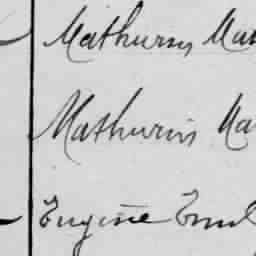 Mathurin Mat
Mathurin Ma
Eugène Emil